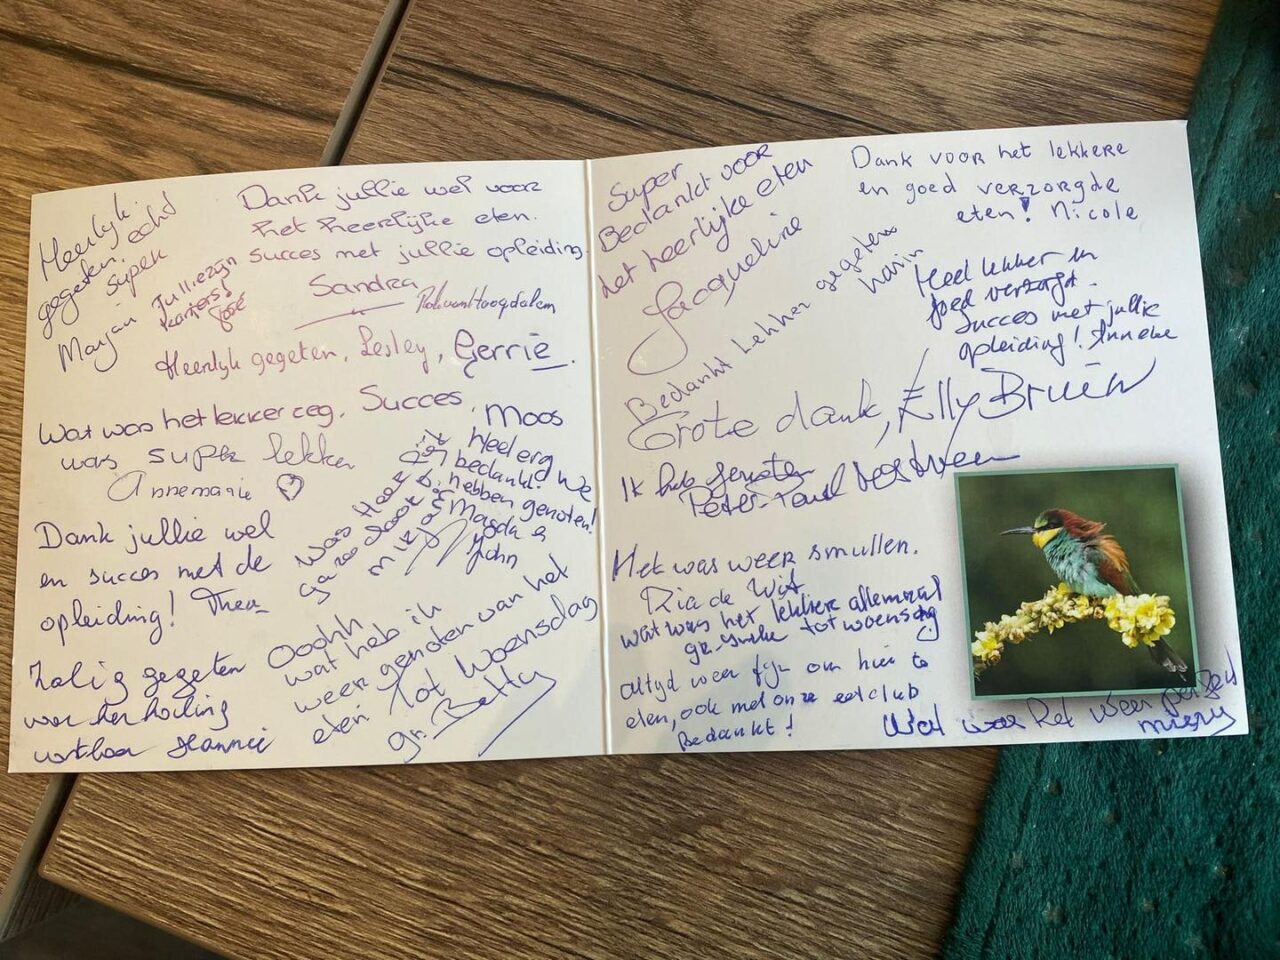 Heerlijk
gegeten, echt
super
Marjan
Jullie zijn
kanjers!
José
Dank jullie wel voor
het heerlijke eten.
Succes met jullie opleiding.
Sandra
Heerlijk gegeten, Lesley, Gerrie.
Wat was het lekker zeg. Succes, Moos
was super lekker
Annemarie ♡
Heel erg
bedankt! We
hebben genoten!
Magda &
John
Dank jullie wel
en succes met de
opleiding! Thea
Zalig gegeten
voor herhaling
vatbaar Hannie
Oohh
wat heb ik
weer genoten van het
eten Tot woensdag
gr. Betty
Super
Bedankt voor
het heerlijke eten
Jacqueline
Dank voor het lekkere
en goed verzorgde
eten! Nicole
Bedankt Lekker gegeten
Karin
Heel lekker en
goed verzorgd.
Succes met jullie
opleiding! Anneke
Grote dank, Elly Bruin
Ik heb genoten
Peter-Paul
Het was weer smullen.
Ria de Wit
wat was het lekkere allemaal
tot woensdag
altijd weer fijn om hier te
eten, ook met onze eetclub
Bedankt!
Wat was het weer